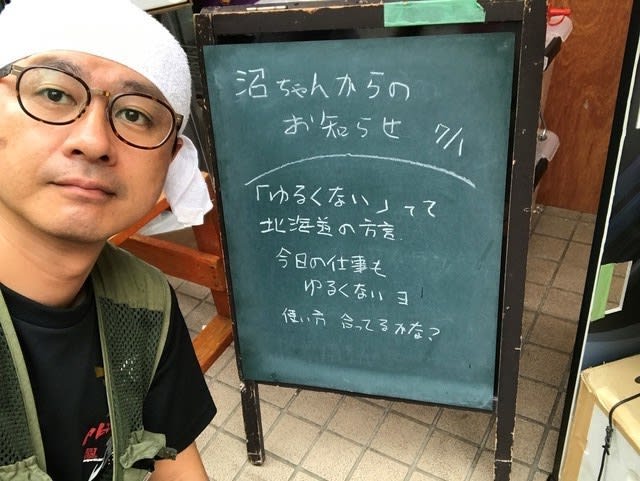 沼ちゃんからの
お知らせ 7/1
「ゆるくない」って
北海道の方言
今日の仕事も
ゆるくないヨ
使い方 合ってるかな?